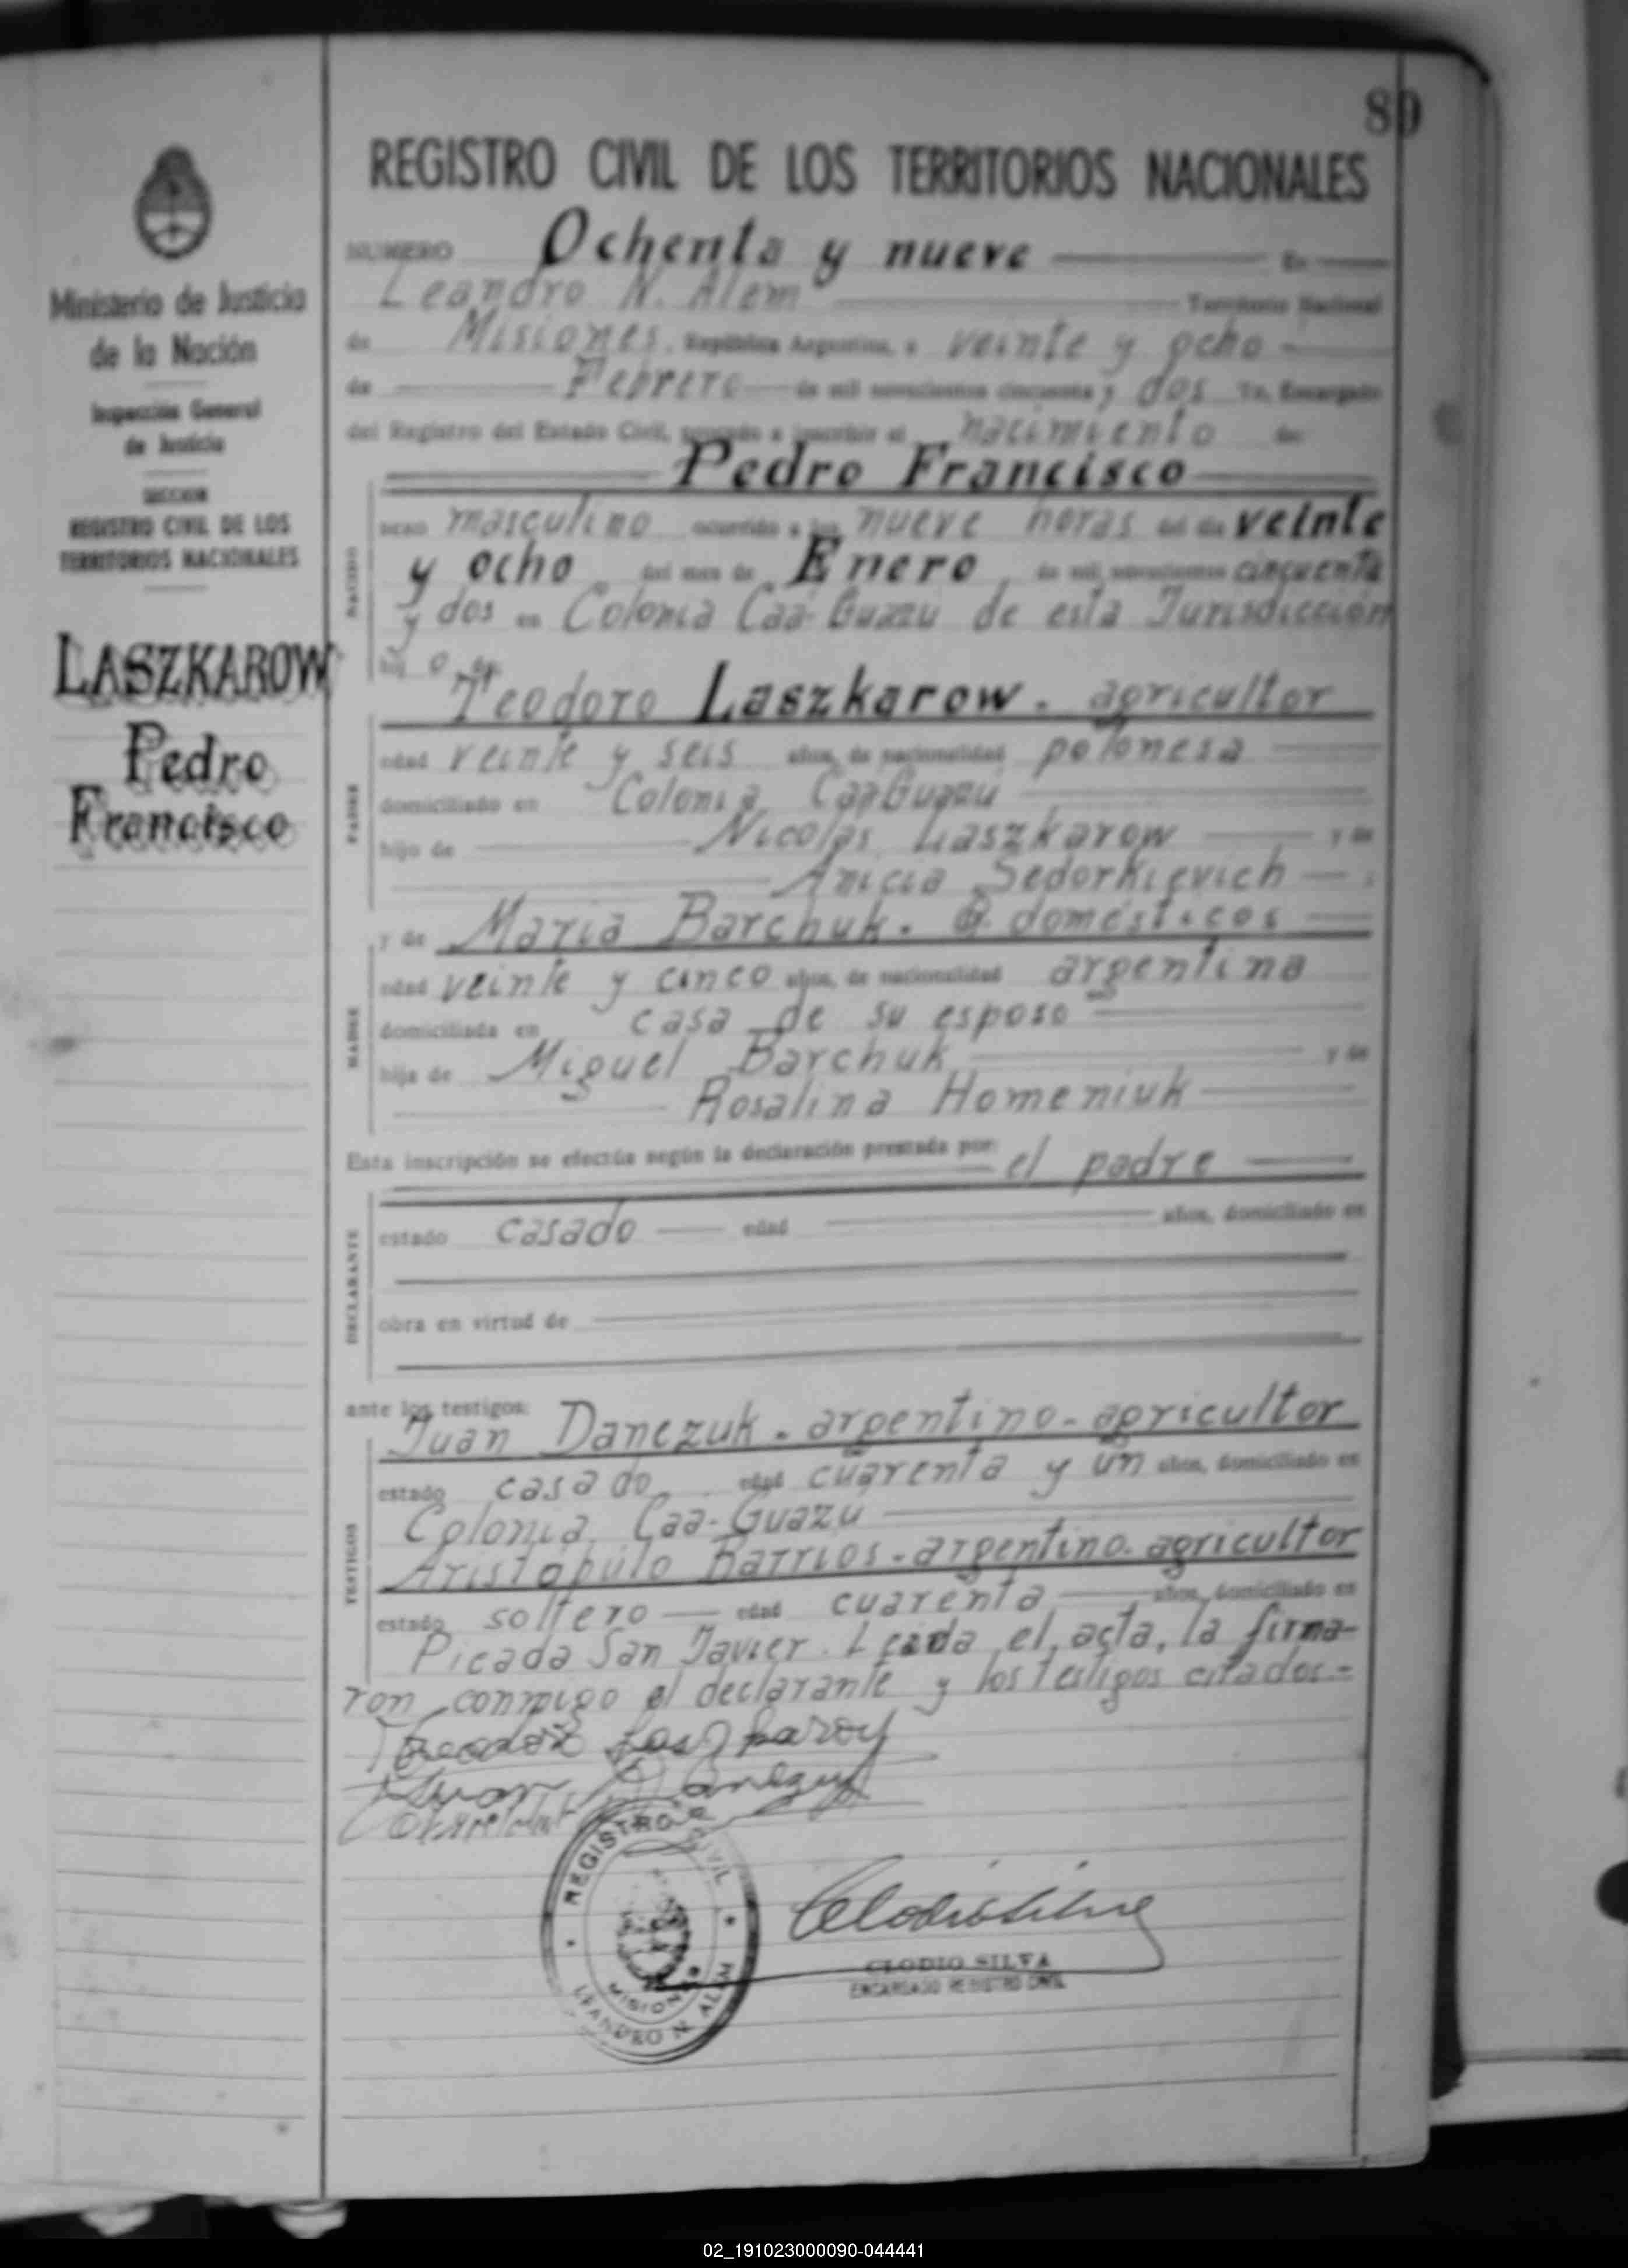 89
REGISTRO CIVIL DE LOS TERRITORIOS NACIONALES
NUMERO Ochenta y nueve En
Leandro N. Alem Territorio Nacional
de Misiones, República Argentina, a veinte y ocho
de Febrero de mil novecientos cincuenta y dos Yo, Encargado
del Registro del Estado Civil, procedo a inscribir el nacimiento de:
Pedro Francisco
NACIDO
sexo masculino ocurrido a las nueve horas del día veinte
y ocho del mes de Enero de mil novecientos cincuenta
y dos en Colonia Caá-Guazú de esta Jurisdicción
hij o de
Teodoro Laszkarow. agricultor
PADRE
edad veinte y seis años, de nacionalidad polonesa
domiciliado en Colonia CaáGuazú
hijo de Nicolás Laszkarow y de
Anicia Sedorkievich
y de Maria Barchuk. Q. domésticos
MADRE
edad veinte y cinco años, de nacionalidad argentina
domiciliada en casa de su esposo
hija de Miguel Barchuk y de
Rosalina Homeniuk
Esta inscripción se efectúa según la declaración prestada por: el padre
DECLARANTE
estado casado edad años, domiciliado en
obra en virtud de
ante los testigos:
Juan Danczuk. argentino. agricultor
TESTIGOS
estado casado edad cuarenta y un años, domiciliado en
Colonia Caá-Guazú
Aristóbulo Barrios. argentino. agricultor
estado soltero edad cuarenta años, domiciliado en
Picada San Javier. Leída el acta, la firma-
ron conmigo el declarante y los testigos citados=
REGISTRO CIVIL
MISIONES
LEANDRO N. ALEM
CLODIO SILVA
ENCARGADO REGISTRO CIVIL
Ministerio de Justicia
de la Nación
Inspección General
de Justicia
SECCION
REGISTRO CIVIL DE LOS
TERRITORIOS NACIONALES
LASZKAROW
Pedro
Francisco
02_191023000090-044441